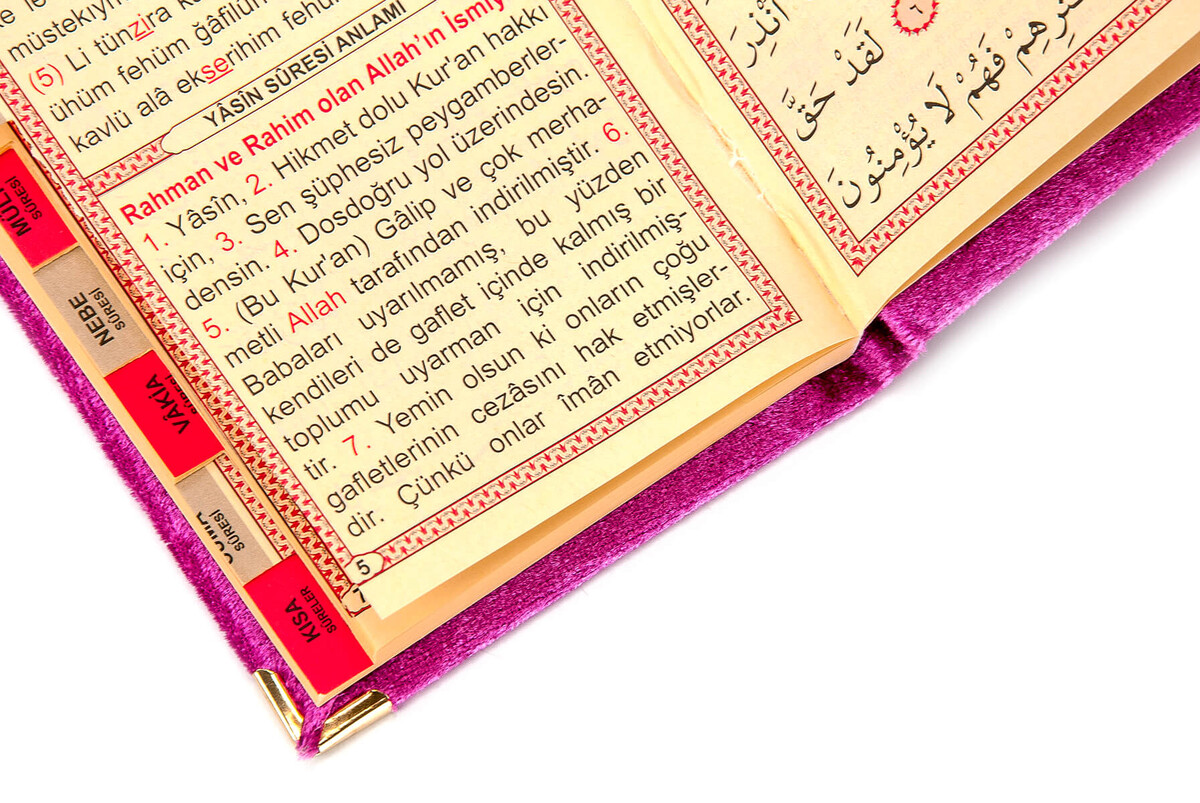 müstekıym
(5) Li tünzira k
ühüm fehüm ğafilûn
kavlü alâ ekserihim fehüm
YÂSÎN SÛRESİ ANLAMI
Rahman ve Rahim olan Allah'ın İsmiy
1. Yâsîn, 2. Hikmet dolu Kur'an hakkı
için, 3. Sen şüphesiz peygamberler-
densin. 4. Dosdoğru yol üzerindesin.
5. (Bu Kur'an) Gâlip ve çok merha-
metli Allah tarafından indirilmiştir. 6.
Babaları uyarılmamış, bu yüzden
kendileri de gaflet içinde kalmış bir
toplumu uyarman için indirilmiş-
tir. 7. Yemin olsun ki onların çoğu
gafletlerinin cezâsını hak etmişler-
dir. Çünkü onlar îmân etmiyorlar.
5
أُنْذِرَ
٦
لَقَدْ حَقَّ
فَهُمْ لَا يُؤْمِنُونَ
MÜL
SÛRESİ
NEBE
SÛRESİ
VÂKIA
SÛRESİ
SÛRESİ
KISA
SÛRELER